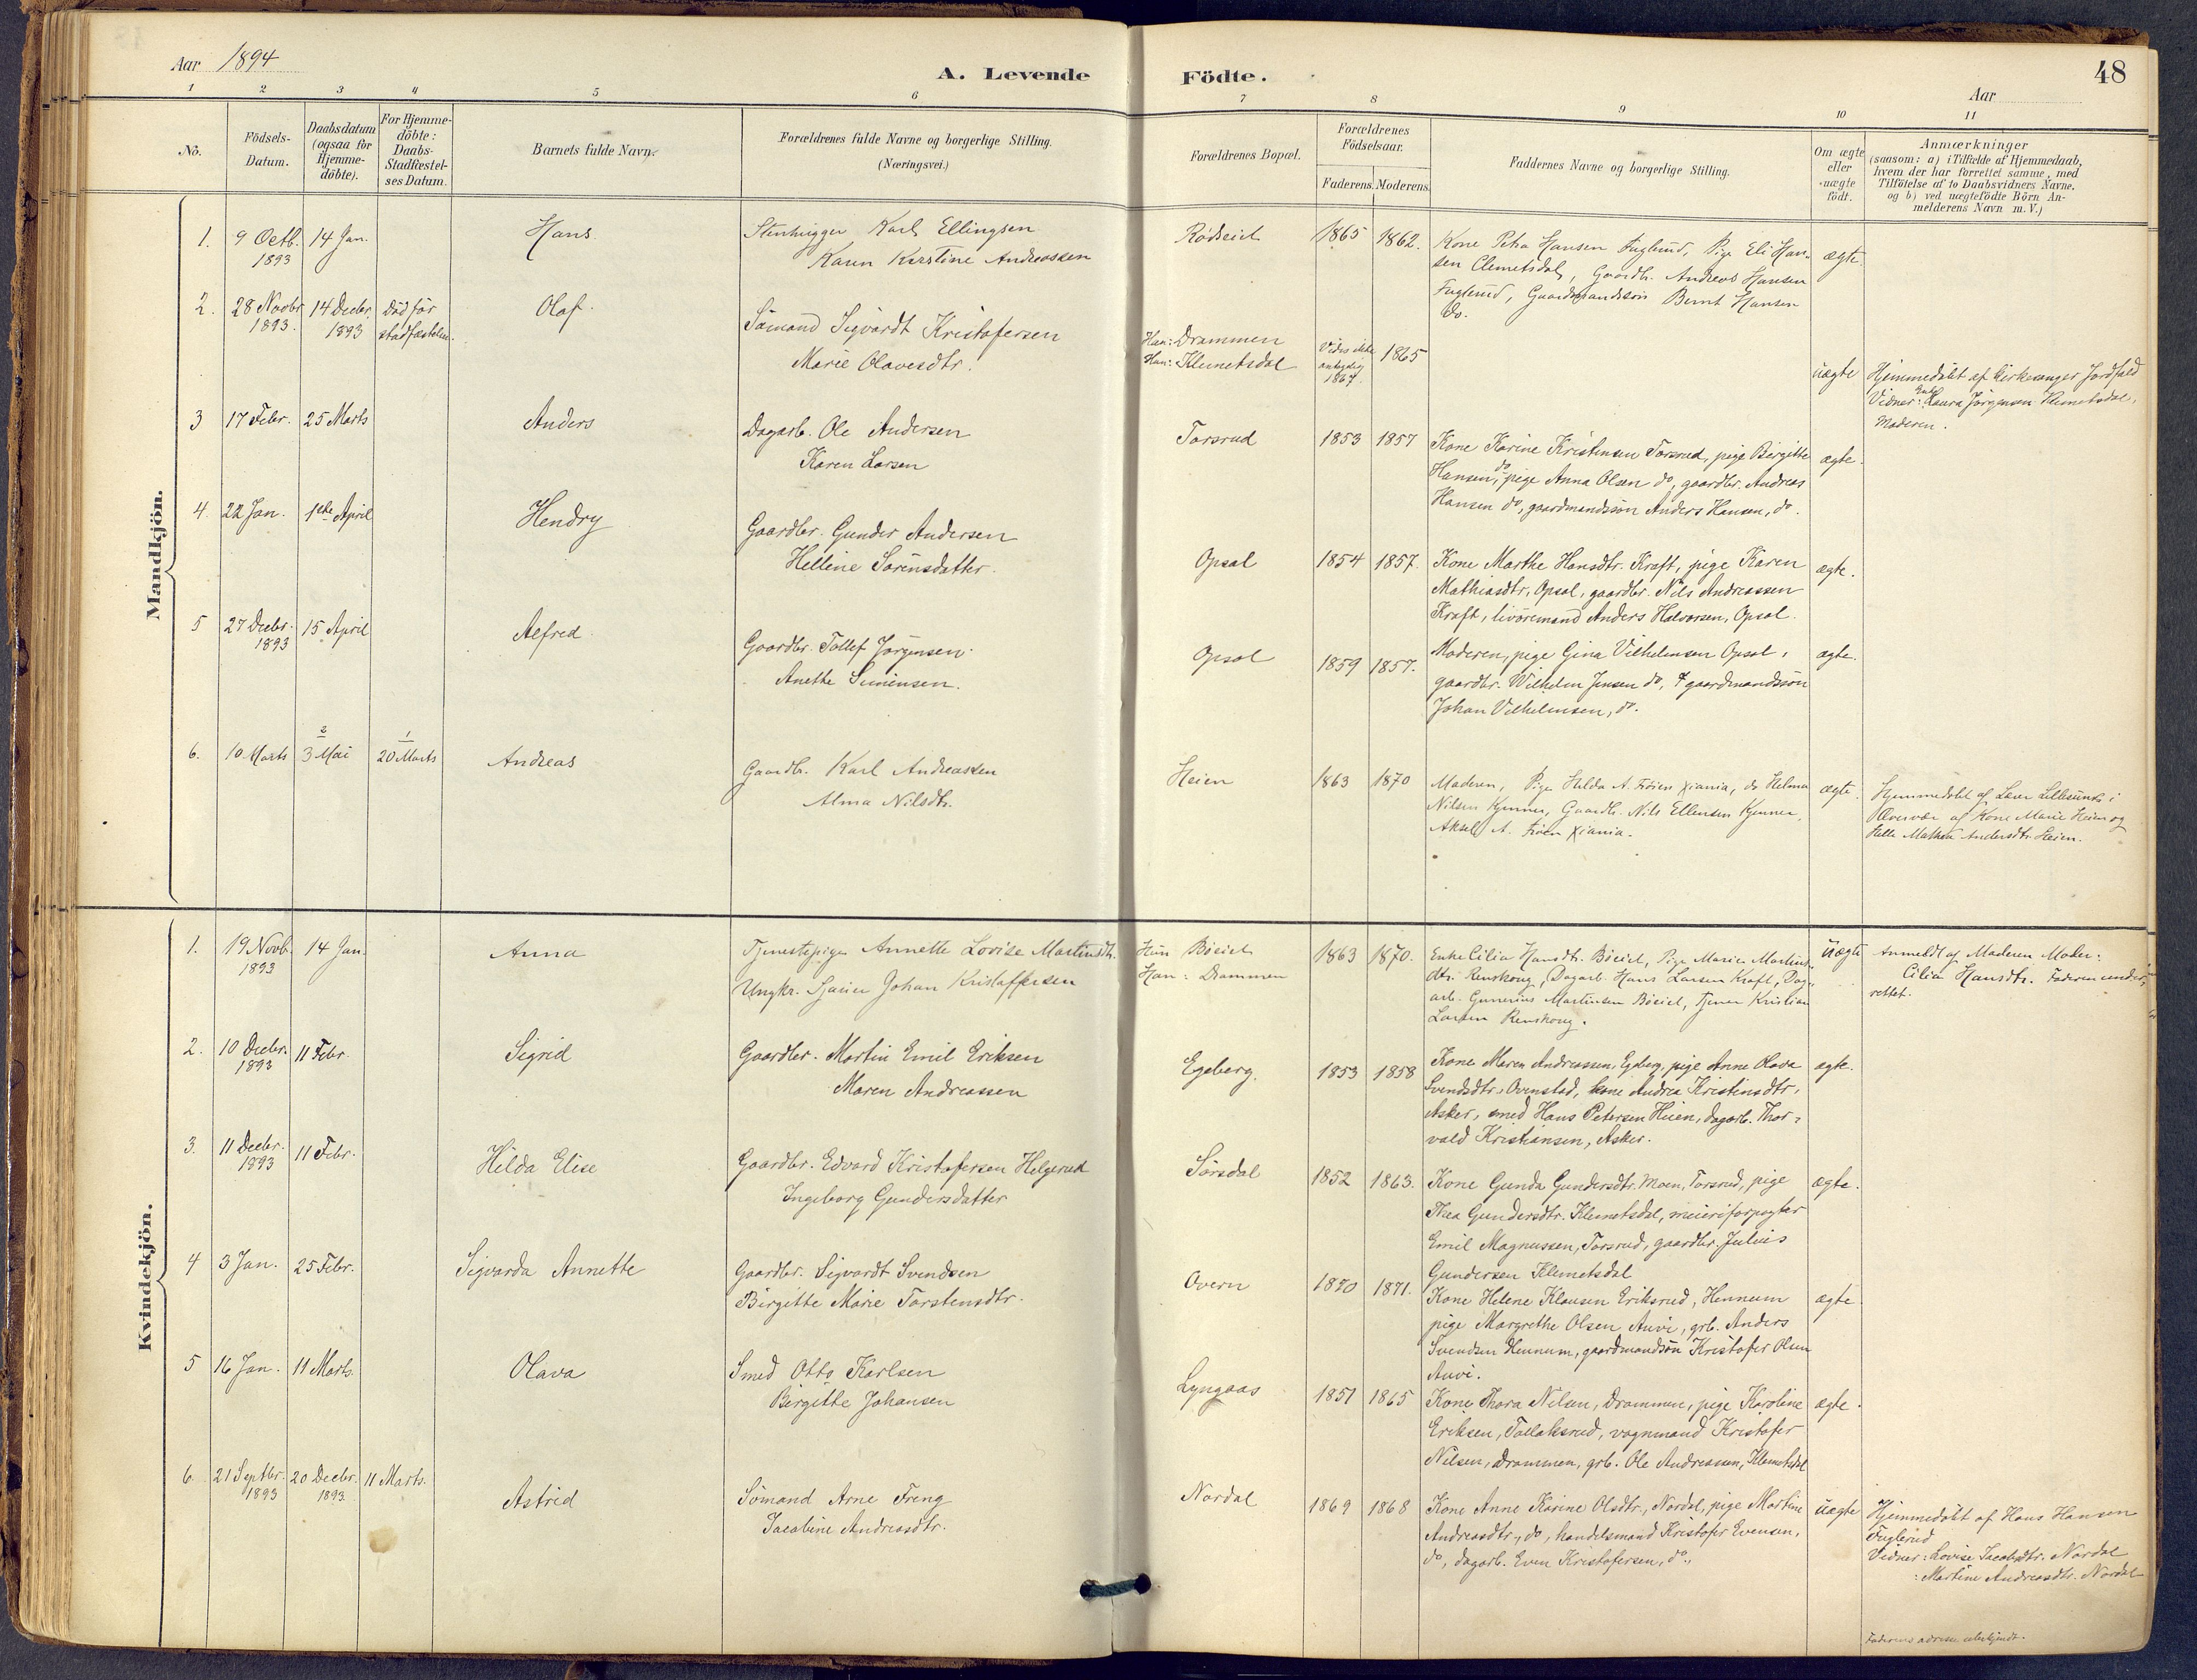 Aar 1894
A. Levende Födte.
48
Aar
1 2 3 4 5 6 7 8 9 10 11
No.
Födsels-
Datum.
Daabsdatum
(ogsaa for
Hjemme-
döbte).
For Hjemme-
döbte:
Daabs-
Stadfæstel-
ses Datum.
Barnets fulde Navn.
Forældrenes fulde Navne og borgerlige Stilling.
(Næringsvei.)
Forældrenes Bopæl.
Forældrenes
Födselsaar.
Faderens. Moderens.
Faddernes Navne og borgerlige Stilling.
Om ægte
eller
uægte
födt.
Anmærkninger
(saasom: a) i Tilfælde af Hjemmedaab,
hvem der har forrettet samme, med
Tilföielse af to Daabsvidners Navne,
og b) ved uægtefödte Börn An-
melderens Navn m. V.)
Mandkjön.
1. 9 Octb. 14 Jan. Hans
1893
Stenhugger Karl Ellingsen
Karen Kerstine Andreassen
Rödseiet 1865 1862.
Kone Petra Hansen Fuglerud, Pige Eli Han-
sen Clemetsdal, Gaardb. Andreas Hansen
Fuglerud, Gaardmandssön Bernt Hansen
do.
ægte.
2. 28 Novbr 14 Decbr. Död för Olaf.
1893. 1893 stadfæstelsen.
Sömand Sigvardt Kristofersen
Marie Olavesdtr.
Han: Drammen
Hun: Klemetsdal
Vides ikke
1867.
1865
uægte
Hjemmedöbt af Kirkesanger Jordfald
Vidner: Laura Jörgensen Klemetsdal,
Moderen.
3 17 Febr. 25 Marts Anders
Dagarb. Ole Andersen
Karen Larsen
Torsrud 1853 1857
Kone Karine Kristensen Torsrud, pige Birgitte
Hansen, do pige Anna Olsen do, gaardbr. Andreas
Hansen do, gaardmandssön Anders Hansen, do.
ægte.
4. 22 Jan. 1ste April Hendry
Gaardbr. Gunder Andersen
Helline Sörensdatter.
Opsal 1854 1857.
Kone Marthe Hansdtr. Kraft, pige Karen
Mathiasdtr, Opsal, gaardbr. Nils Andreassen
Kraft, livöremand Anders Halvorsen, Opsal.
ægte.
5 27 Decbr. 15 April Alfred
1893
Gaardbr. Tollef Jörgensen.
Anette Simensen.
Opsal 1859 1857.
Moderen, pige Gina Vilhelmsen Opsal,
gaardbr. Wilhelm Jensen do, gaardmandssön
Johan Vilhelmsen, do.
ægte.
2 1
6. 10 Marts 3 Mai 20 Marts Andreas
Gaardb. Karl Andreassen
Alma Nilsdtr.
Heien 1863 1870
Moderen, Pige Hilda A. Fröien Xiania, do Helma
Nilsen Kjenner, Gaardb. Nils Ellensen Kjenner,
Aksel A. Fröien Xiania.
ægte.
Hjemmedöbt af Lærer Lillesund i
Overvær af Kone Marie Heien og
Andersdtr. Heien.
Kvindekjön.
1. 19 Novb. 14 Jan. Anna
1893
Tjenestepige Annette Lovise Martinsdtr.
Ungkr. Johan Kristoffersen
Hun Böeiet
Han: Drammen
1863 1870.
Enke Cilia Hansdtr. Böeiet, Pige Marie Martins-
dtr. Renskoug, Dagarb. Hans Larsen Kraft, Dag-
arb. Gunerius Martinsen Böeiet, Tjener Kristian
Larsen Renskoug.
uægte
Anmeldt af Moderens Moder:
Cilia Hansdtr. Faderen under-
rettet.
2. 10 Decbr. 11 Febr. Sigrid
1893
Gaardbr. Martin Emil Eriksen
Maren Andreassen
Egeberg. 1853 1858
Kone Maren Andreassen, Egeberg, pige Anne Olava
Svendsdtr. Ovenstad, kone Andrea Kristensdtr,
Asker, smed Hans Petersen Heien, dagarb. Thor-
vald Kristiansen, Asker.
ægte.
3. 11 Decbr. 11 Febr. Hilda Elise
1893
Gaardbr. Edvard Kristofersen Helgerud
Ingeborg Gundersdatter
Sörsdal 1852 1863.
Kone Gunda Gundersdtr. Moen, Torsrud, pige
Thea Gundersdtr. Klemetsdal, meieriforpagter
Emil Magnussen, Torsrud, gaardbr. Julius
Gundersen Klemetsdal
ægte.
4 3 Jan. 25 Febr. Sigvarda Annette
Gaardbr. Sigvardt Svendsen
Birgitte Marie Torstensdtr.
Overn 1870 1871.
Kone Helene Klausen Eriksrud, Hennum
pige Margrethe Olsen Auvi, grb. Anders
Svendsen Hennum, gaardmandsön Kristofer Olsen
Auvi.
ægte.
5 16 Jan. 11 Marts. Olava
Smed Otto Karlsen
Birgitte Johansen
Lyngaas 1851 1865
Kone Thora Nilsen, Drammen, pige Karoline
Eriksen, Tollaksrud, vognmand Kristofer
Nilsen, Drammen, grb. Ole Andreassen, Klemetsdal
ægte.
6. 21 Septbr. 20 Decbr. 11 Marts. Astrid
1893 1893.
Sömand Arne Freng
Jacobine Andreasdtr.
Nordal 1869 1868
Kone Anne Karine Olsdtr, Nordal, pige Martine
Andreasdtr., do, handelsmand Kristofer Evensen,
do, dagarb. Even Kristofersen, do.,
uægte
Hjemmedöbt af Hans Hansen
Fuglerud
Vidner: Lovise Jacobsdtr. Nordal
: Martine Andreasdtr. Nordal
Faderens adresse ubekjendt.